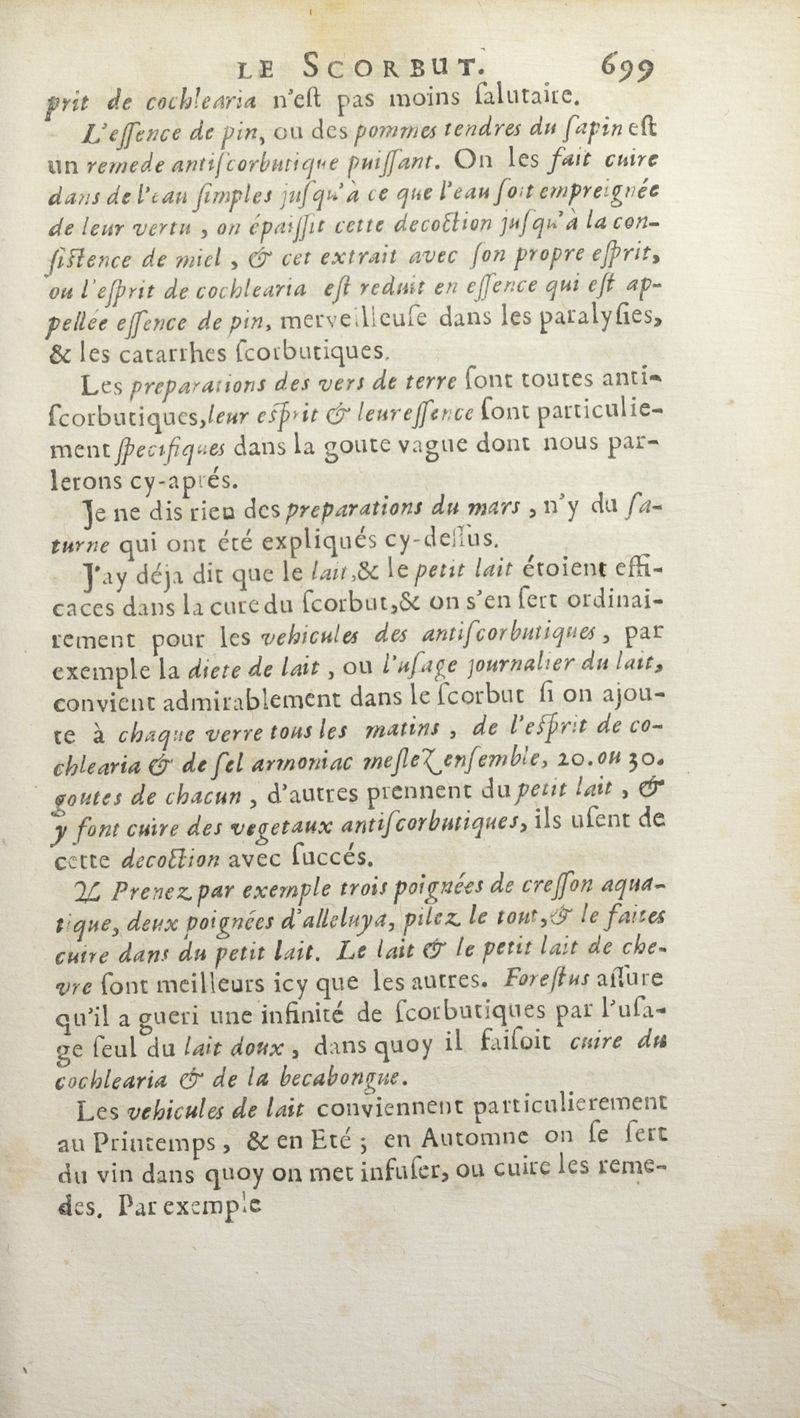 LE SCORBUT. 699
prit de cochlearia n'eſt pas moins ſalutaire.
L'eſſence de pin, ou des pommes tendres du ſapin eſt
un remede antiſcorbutique puiſſant. On les fait cuire
dans de l'eau ſimples juſqu'à ce que l'eau ſoit empreignée
de leur vertu , on épaiſſit cette decoction juſqu'à la con-
ſiſtence de miel , & cet extrait avec ſon propre eſprit,
ou l'eſprit de cochlearia eſt reduit en eſſence qui eſt ap-
pellée eſſence de pin, merveilleuſe dans les paralyſies,
& les catarrhes ſcorbutiques.
Les preparations des vers de terre ſont toutes anti-
ſcorbutiques, leur eſprit & leur eſſence ſont particulie-
ment ſpecifiques dans la goute vague dont nous par-
lerons cy-aprés.
Je ne dis rien des preparations du mars , n'y du ſa-
turne qui ont été expliqués cy-deſſus.
J'ay déja dit que le lait, & le petit lait étoient effi-
caces dans la cure du ſcorbut, & on s'en ſert ordinai-
rement pour les vehicules des antiſcorbutiques , par
exemple la diete de lait , ou l'uſage journalier du lait,
convient admirablement dans le ſcorbut ſi on ajou-
te à chaque verre tous les matins , de l'eſprit de co-
chlearia & de ſel armoniac meſlez enſemble, 20. ou 30.
goutes de chacun , d'autres prennent du petit lait , &
y font cuire des vegetaux antiſcorbutiques, ils uſent de
cette decoction avec ſuccés.
♃ Prenez par exemple trois poignées de creſſon aqua-
tique, deux poignées d'alleluya, pilez le tout, & le faites
cuire dans du petit lait. Le lait & le petit lait de che-
vre ſont meilleurs icy que les autres. Foreſtus aſſure
qu'il a gueri une infinité de ſcorbutiques par l'uſa-
ge ſeul du lait doux , dans quoy il faiſoit cuire du
cochlearia & de la becabongue.
Les vehicules de lait conviennent particulierement
au Printemps , & en Eté ; en Automne on ſe ſert
du vin dans quoy on met infuſer, ou cuire les reme-
des. Par exemple